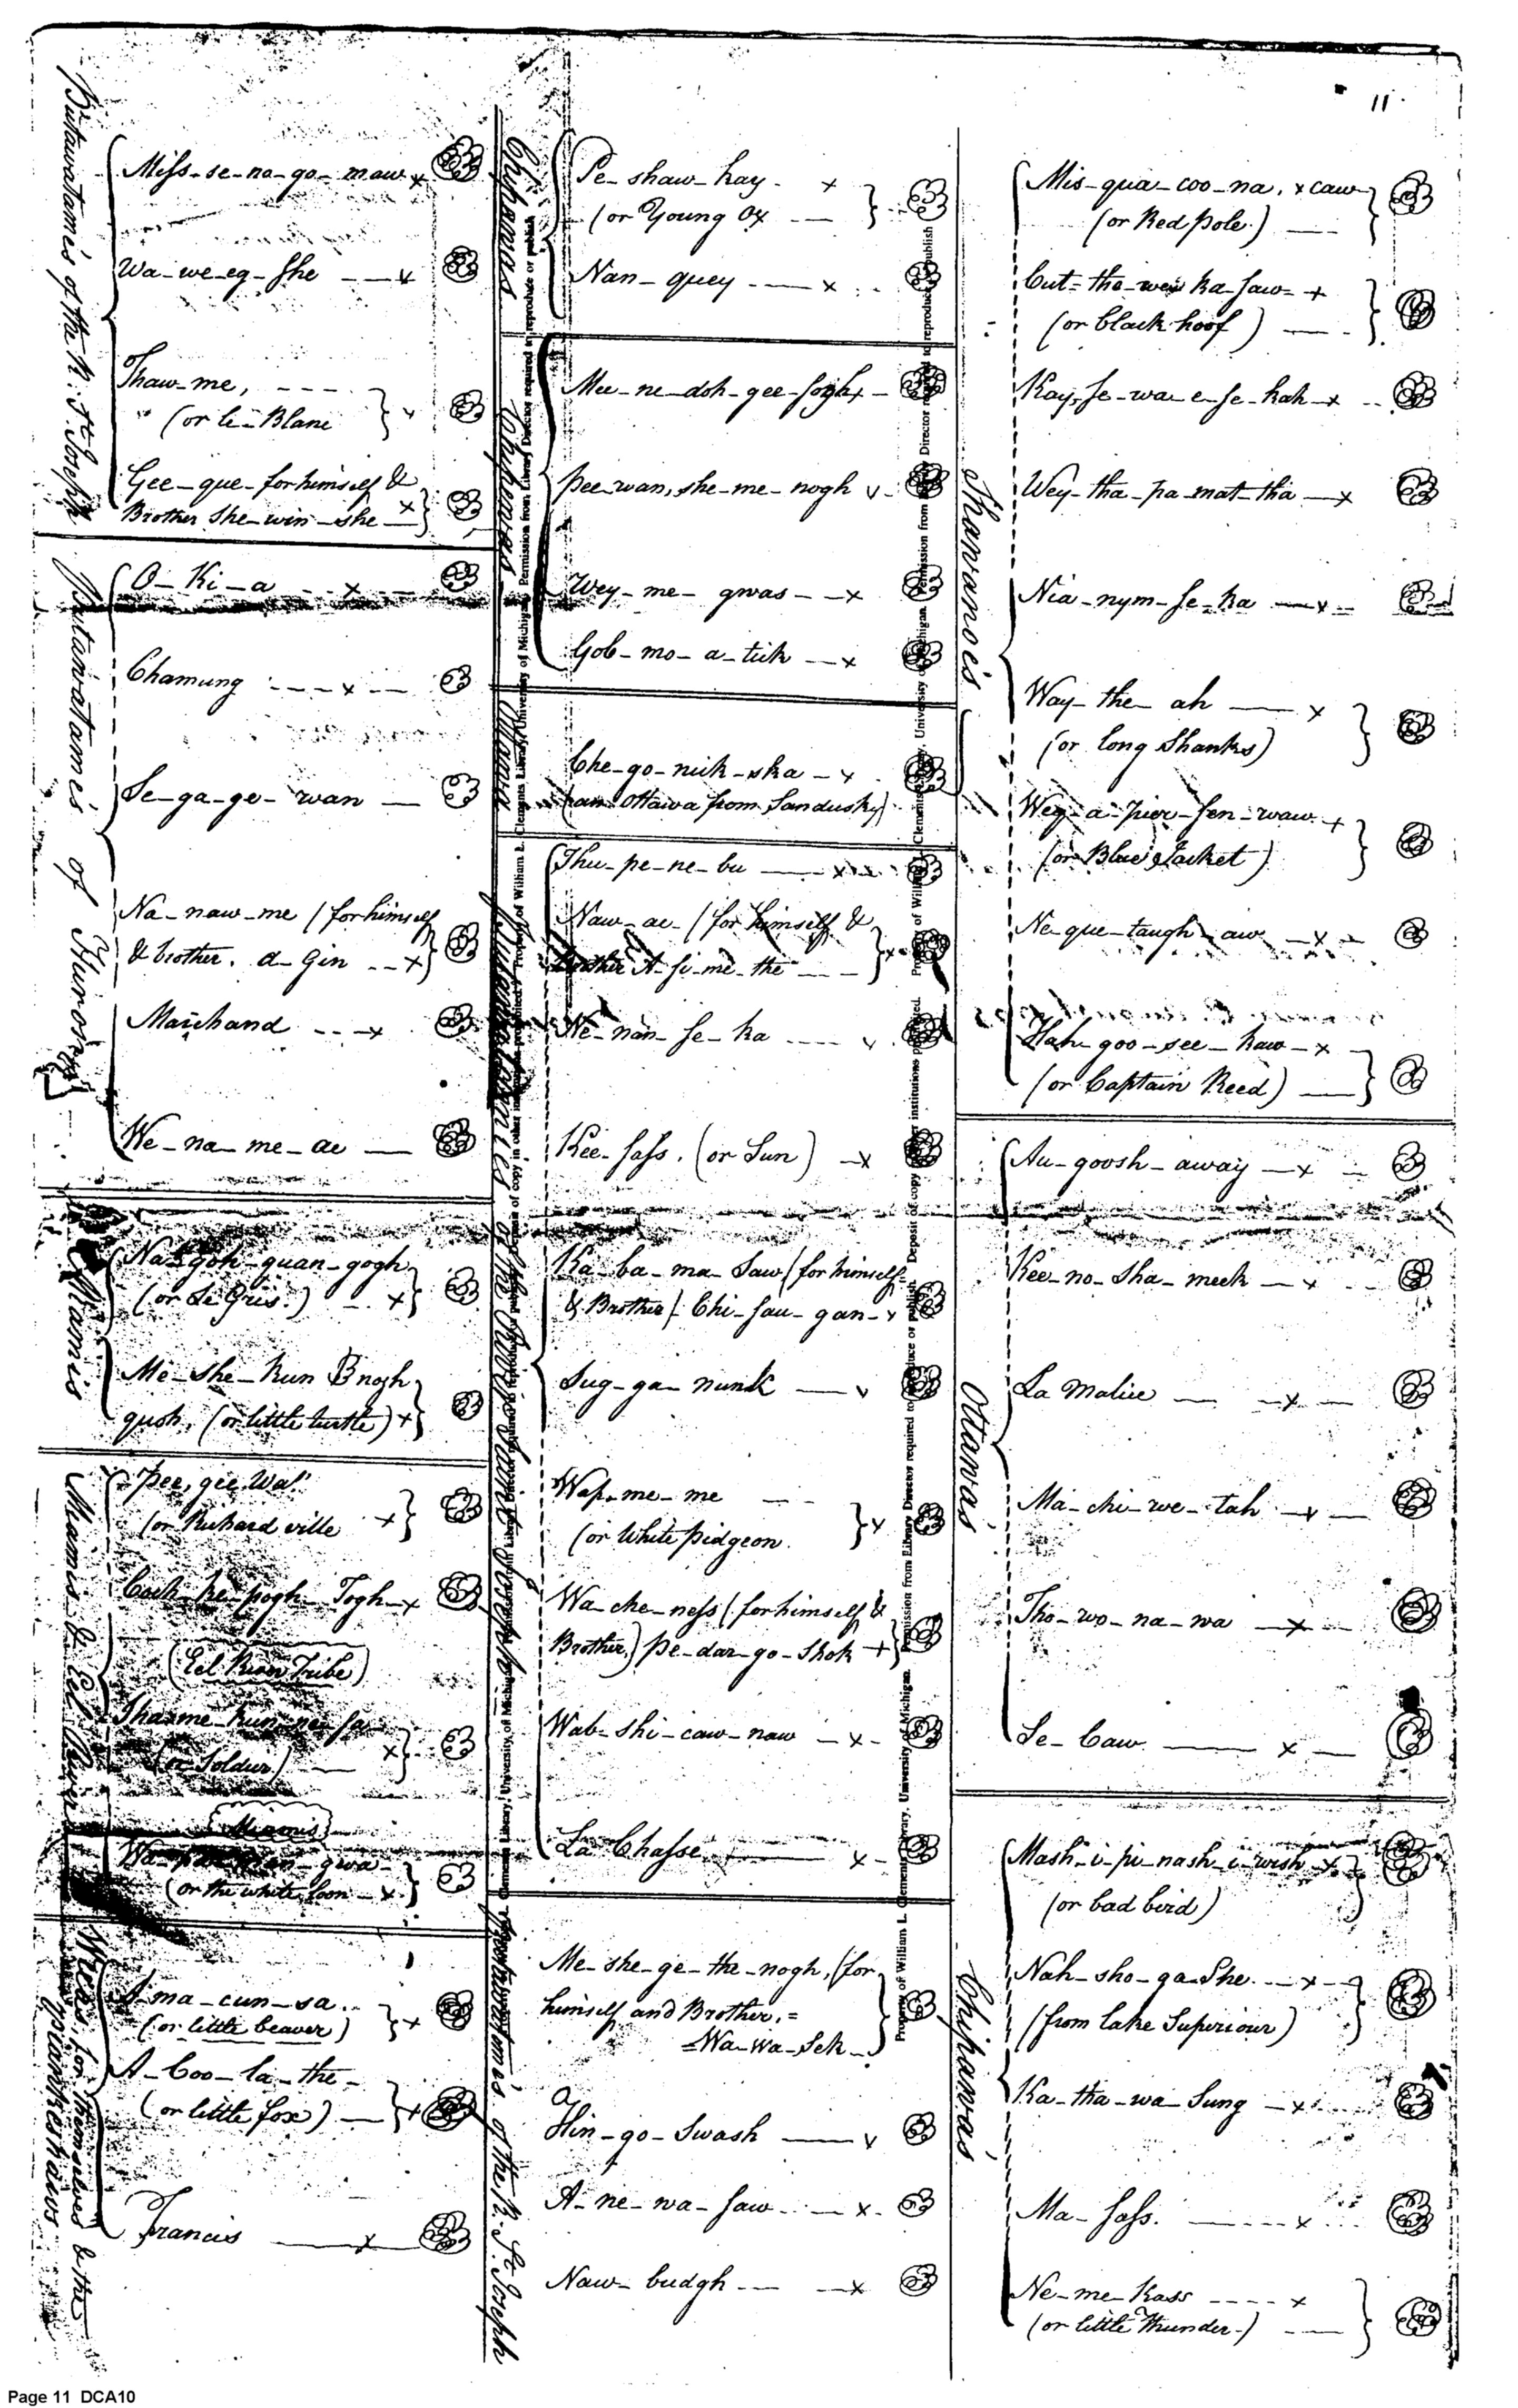 11.
Putawatame's of the R. St. Joseph
Miss-se-no-go-maw x
Wa-we-eg-she x
Thaw-me,
(or le Blanc x
Gee-que-for himself &
Brother She-win-she x
Putawatame's of Huron
O-Ki-a x
Chamung x
Se-ga-ge-wan
Na-naw-me (for himself
& brother. a-Gin x
Marchand x
We-na-me-ac
Miamis
Na-goh-quan-gogh
(or Le Gris.) x
Me-she-kun nogh
quoh, (or little turtle) x
Miamis & Eel River
Pee, gee, wa
(or Richard ville x
Cock-ke-pogh-Togh x
(Eel River Tribe)
Sha-me-kun-ne-sa
(or Soldier) x
Miamis
(or the white loon x
Weas, for themselves & the
Piankeshaws
A-ma-cun-sa
(or little beaver) x
A-Coo-la-the
(or little fox) x
Francis x
Chipawas
Pe-shaw-kay x
(or Young Ox
Nan-quey x
Chipawas
Mee-ne-doh-gee-sogh x
Pee-wan, she-me-nogh x
Wey-me-gwas x
Gob-mo-a-tick x
Ottawa
Che-go-nick-ska x
(an Ottawa from Sandusky)
Putawatamies of the River Saint Joseph
Thu-pe-ne-bu x
Naw-ac (for himself &
Brother A-si-me-the x
Ne-nan-se-ka x
Kee-sass. (or Sun) x
Ka-ba-ma-Saw (for himself
& Brother) Chi-sau-gan x
Sug-ga-nunk x
Wap-me-me
(or White pidgeon. x
Wa-che-ness (for himself &
Brother) Pe-dar-go-Shok x
Wab-shi-caw-naw x
La Chasse x
Putawatame's of the R. St. Joseph
Me-she-ge-the-nogh, (for
himself and Brother,
Wa-wa-Sek
a
Hin-go-Swash x
A-ne-wa-saw x
Naw-budgh x
Shawanois
Mis-qua-coo-na, x caw
(or Red pole.)
Cut-the-we ka-saw x
(or black hoof)
Kay-se-wa-e-se-kah x
Wey-tha-pa-mat-tha x
Nia-nym-se-ka x
Way-the-ah x
(or long Shanks)
Wey-a-pier-sen-waw x
(or Blue Jacket)
Ne-que-taugh-aw x
Hah-goo-see-kaw x
(or Captain Reed)
Ottawas
Au-goosh-away x
Kee-no-Sha-meek x
La Malice x
Ma-chi-we-tah x
Tho-wo-na-wa x
Se-Caw x
Chipawas
Mash-i-pi-nash-i-wish x
(or bad bird)
Nah-sho-ga-She x
(from lake Superiour)
Ka-tha-wa-Sung x
Ma-sass. x
Ne-me-Kass x
(or little thunder)
Property of William L. Clements Library, University of Michigan. Permission from Library Director required to reproduce or publish
Page 11 DCA10